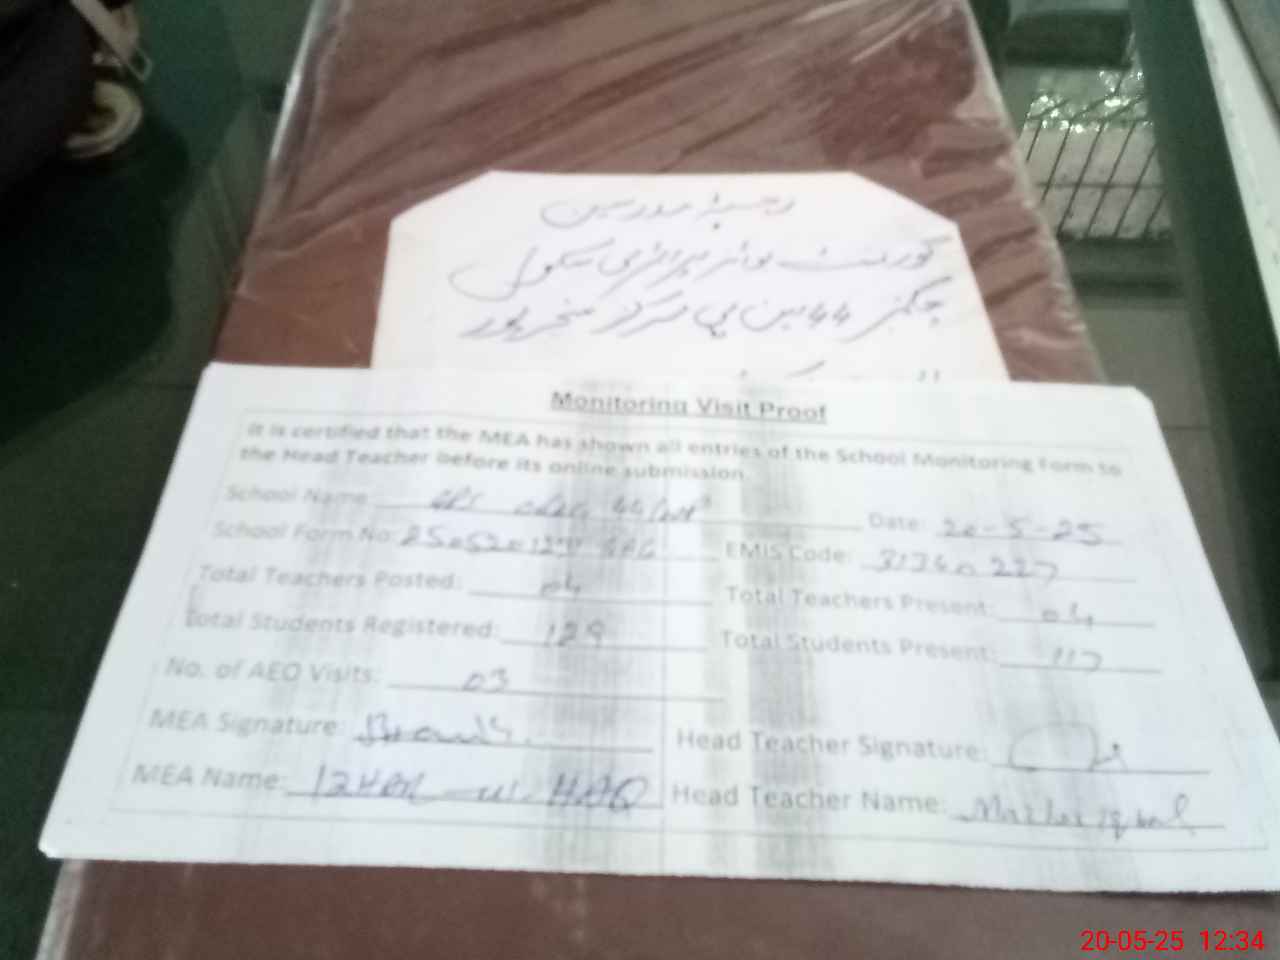 رجسٹر مدرسین
گورنمنٹ بوائز پرائمری سکول
چک نمبر 44 این پی مرکز سنجر پور
Monitoring Visit Proof
It is certified that the MEA has shown all entries of the School Monitoring Form to
the Head Teacher before its online submission.
School Name: GPS Chak 44/NP Date: 20-5-25
School Form No: EMIS Code: 31340227
Total Teachers Posted: 04 Total Teachers Present: 04
Total Students Registered: 129 Total Students Present: 117
No. of AEO Visits: 03
MEA Signature: Head Teacher Signature:
MEA Name: IZHAR-ul-HAQ Head Teacher Name: Mazhar iqbal
20-05-25 12:34